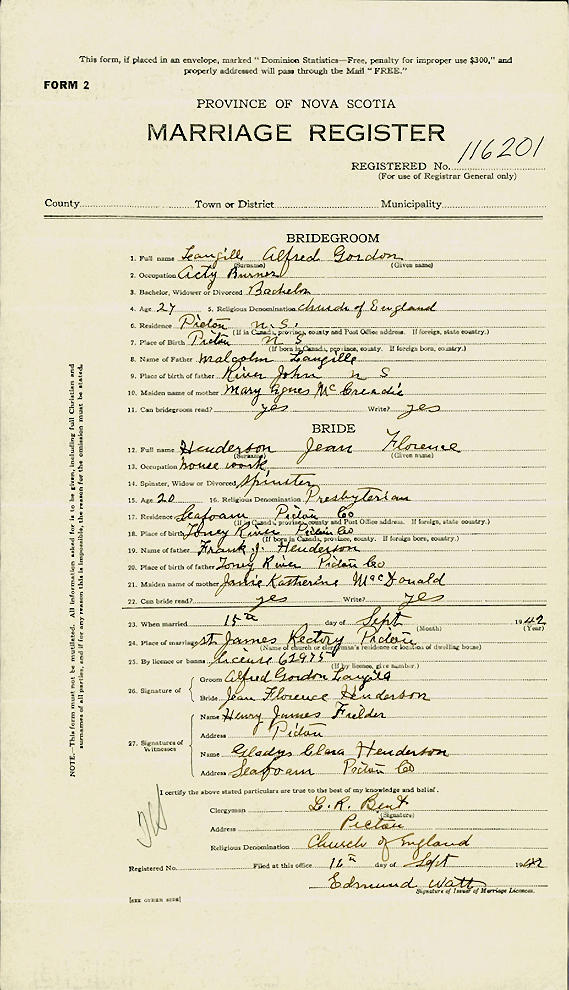 This form, if placed in an envelope, marked "Dominion Statistics—Free, penalty for improper use $300," and
properly addressed will pass through the Mail "FREE."
FORM 2
PROVINCE OF NOVA SCOTIA
MARRIAGE REGISTER
REGISTERED No. 116201
(For use of Registrar General only)
County Town or District Municipality
BRIDEGROOM
1. Full name Langille Alfred Gordon
(Surname) (Given name)
2. Occupation Acty Burner
3. Bachelor, Widower or Divorced Bachelor
4. Age 27 5. Religious Denomination Church of England
6. Residence Pictou N.S.
(If in Canada, province, county and Post Office address. If foreign, state country.)
7. Place of Birth Pictou N S
(If born in Canada, province, county. If foreign born, country.)
8. Name of Father Malcolm Langille
9. Place of birth of father River John N S
10. Maiden name of mother Mary Agnes McCreadie
11. Can bridegroom read? yes Write? yes
BRIDE
12. Full name Henderson Jean Florence
(Surname) (Given name)
13. Occupation house work
14. Spinster, Widow or Divorced Spinster
15. Age 20 16. Religious Denomination Presbyterian
17. Residence Seafoam Pictou Co
(If in Canada, province, county and Post Office address. If foreign, state country.)
18. Place of birth Toney River Pictou Co
(If born in Canada, province, county. If foreign born, country.)
19. Name of father Frank J. Henderson
20. Place of birth of father Toney River Pictou Co
21. Maiden name of mother Katherine MacDonald
22. Can bride read? yes Write? yes
23. When married 15th day of Sept 1942
(Month) (Year)
24. Place of marriage St James Rectory Pictou
(Name of church or clergyman's residence or location of dwelling house)
25. By licence or banns License 62975
(If by licence, give number.)
26. Signature of
Groom Alfred Gordon Langille
Bride Jean Florence Henderson
27. Signatures of Witnesses
Name Henry James Fielder
Address Pictou
Name Gladys Clara Henderson
Address Seafoam Pictou Co
I certify the above stated particulars are true to the best of my knowledge and belief.
Clergyman L. R. Bent
(Signature)
Address Pictou
Religious Denomination Church of England
Registered No. Filed at this office 16th day of Sept 1942
Edmund Watt
Signature of Issuer of Marriage Licences.
[SEE OTHER SIDE]
NOTE.—This form must not be mutilated. All information asked for is to be given, including full Christian and
surnames of all parties, and if for any reason this is impossible, the reason for the omission must be stated.